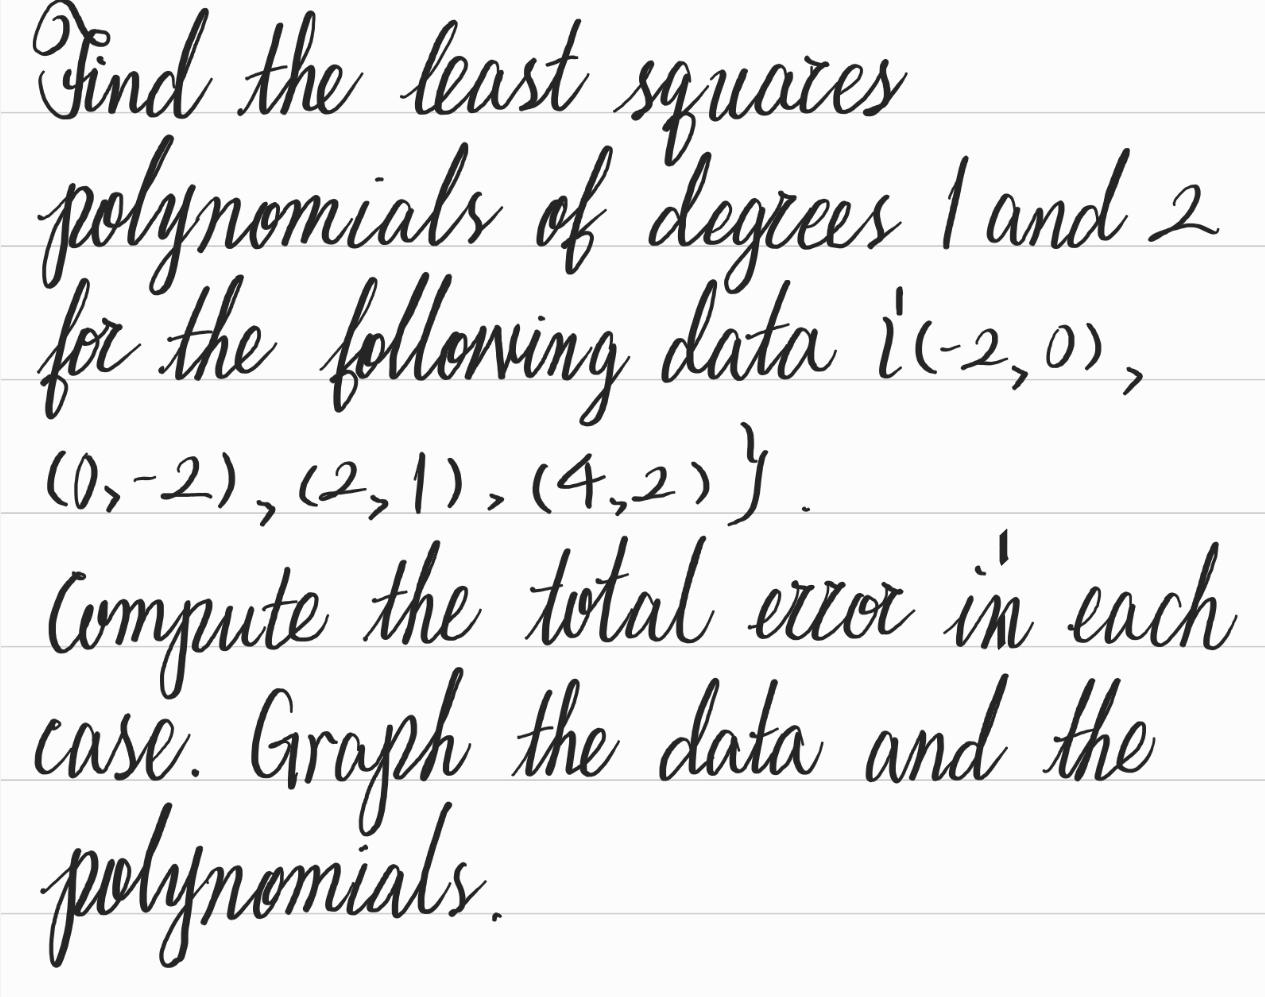 Find the least squares
polynomials of degrees 1 and 2
for the following data {(-2,0),
(0,-2), (2,1), (4,2)}.
Compute the total error in each
case. Graph the data and the
polynomials.